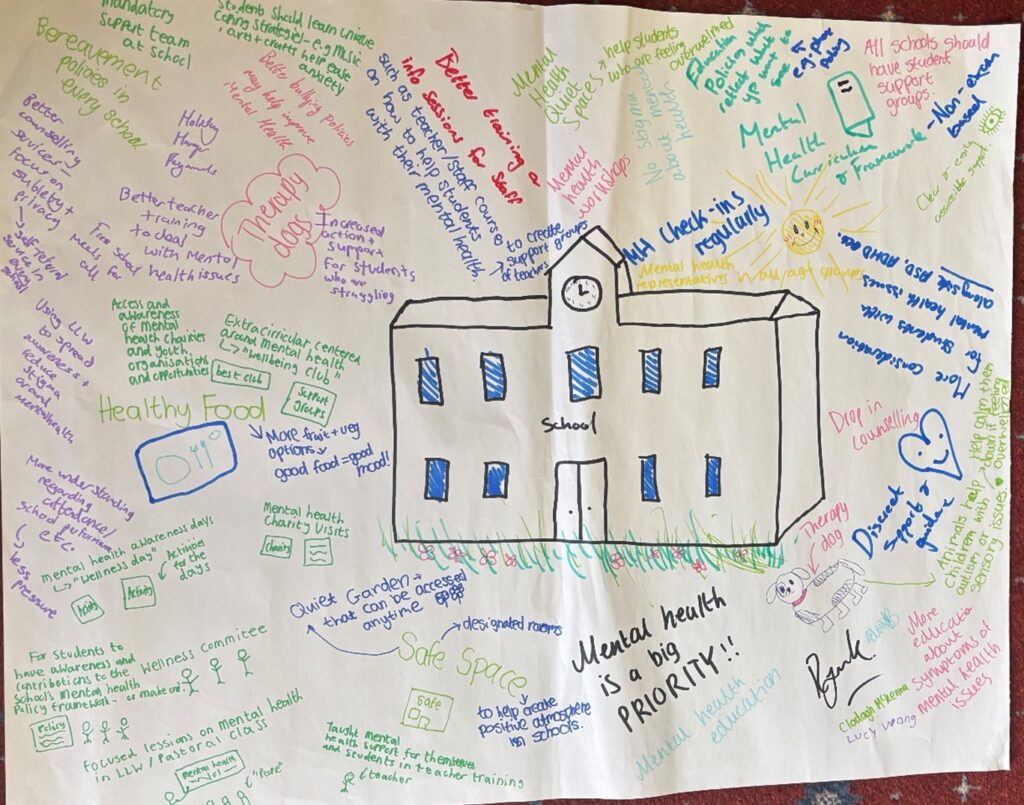 mandatory
support team
at school
Bereavement
policies in
every school
Students should learn unique
coping strategies - e.g music
, arts + crafts help ease
anxiety
Better bullying policies
may help improve
Mental Health
such as teacher/staff courses
on how to help students
with their mental health.
Better training &
info sessions for staff
Mental
Health
Quiet
Spaces
help students
who are feeling
overwhelmed
No stigma
about mental
health
Mental
health
workshops
Education
Policies which
reflect what
Mental
Health
Curriculum
& Framework
- Non-exam
based
All schools should
have student
support
groups.
Clear & easily
accessible support
Better
counselling
services -
focus on
subtlety +
privacy
self referal
service in
school
Holiday
Hunger
Payments
Better teacher
training
to deal
with mental
health issues
Free School
Meals for
all
Therapy
dogs
Increased
action +
support
for students
who are
struggling
to create
support groups
of teachers
MH Check-ins
regularly
Mental health
representatives in all age groups
More consideration
for students with
mental health issues
alongside ASD, ADHD etc.
Using LLW
to spread
awareness +
reduce
stigma
around
mental health
Access and
awareness
of mental
health charities
and youth
organisations
and opportunities
Extracirricular centered
around Mental health
"wellbeing club"
best club
support
groups
Healthy Food
More fruit + veg
options
good food = good
mood!
School
Drop in
counselling
Discreet
support &
guidance
Help calm them
down if feeling
overwhelmed
Animals help
children with
autism or
sensory issues.
Therapy
dog
More understanding
regarding
attendance/
school performance
etc.
less
pressure
mental health awareness days
"Wellness day"
Activities
to the
days
Activity
Mental health
Charity Visits
Charity
Quiet Garden
that can be accessed
anytime
designated rooms
Safe Space
Safe
to help create
positive atmosphere
in schools.
Mental health
is a big
PRIORITY!!
Mental health
education
More
education
about
symptoms of
mental health
issues
Lucy Wong
For students to
have awareness and
contributions to the
school's mental health
Policy framework - or make one!
Wellness commitee
Policy
focused lessions on mental health
in LLW / Pastoral Class
mental health
Taught mental
health support for themselves
and students in teacher training
teacher